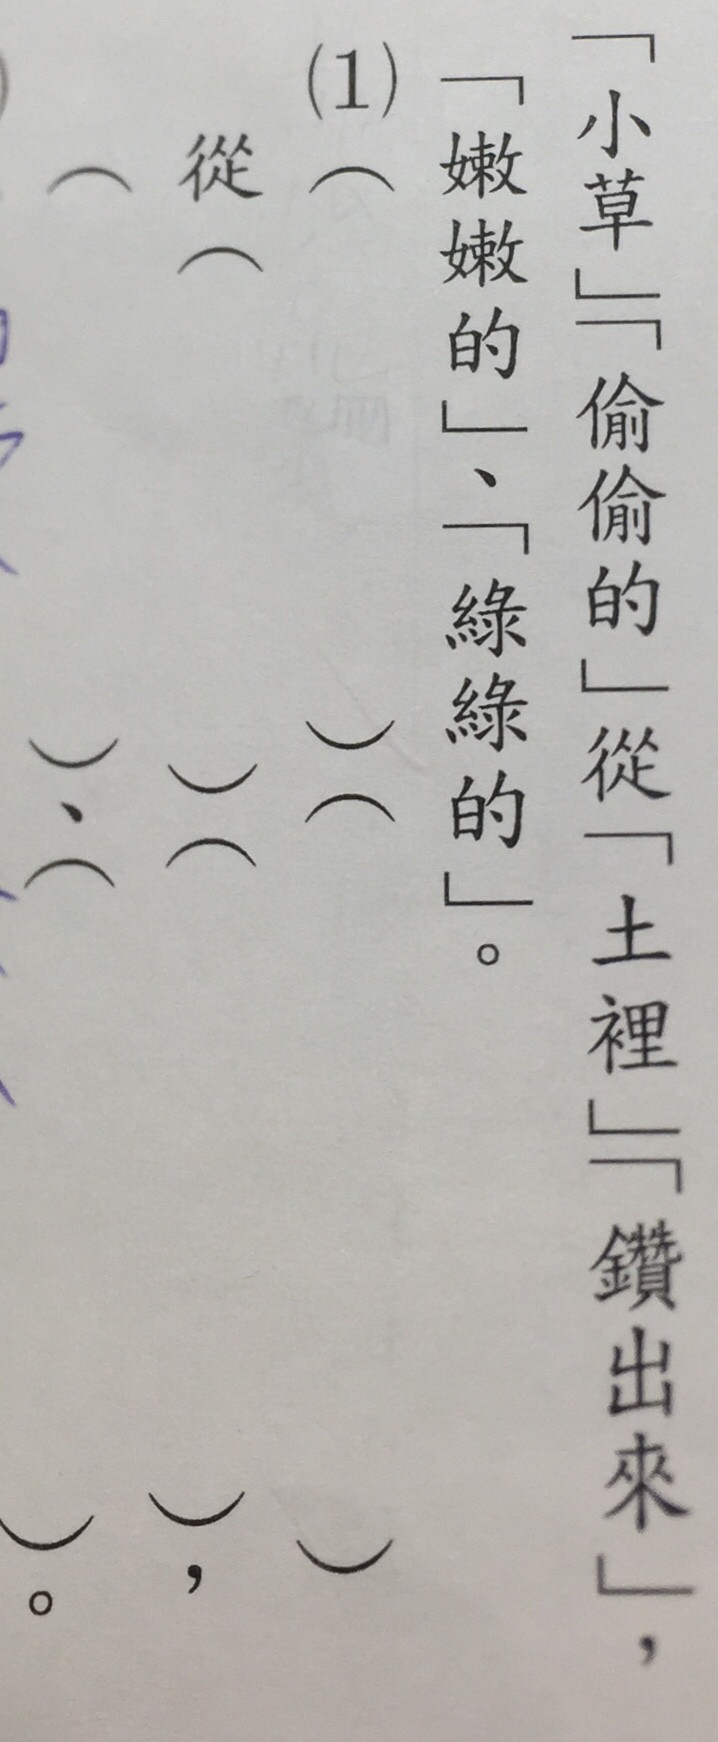 「小草」「偷偷的」從「土裡」「鑽出來」，
「嫩嫩的」、「綠綠的」。
(1)（）（）
從（）（），
（）、（）。